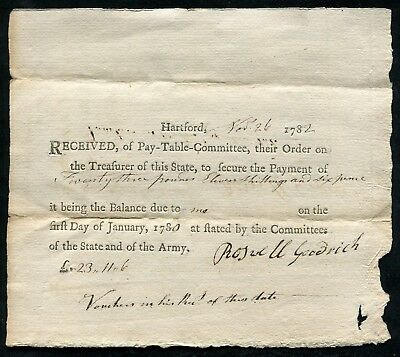 Hartford, Nov. 26 1782
RECEIVED, of Pay-Table-Committee, their Order on
the Treasurer of this State, to secure the Payment of
Twenty three pounds Eleven Shillings and six pence
it being the Balance due to me on the
first Day of January, 1780 at stated by the Committees
of the State and of the Army.
£ 23..11..6 Roswell Goodrich
Vouchers in his Rect of this date